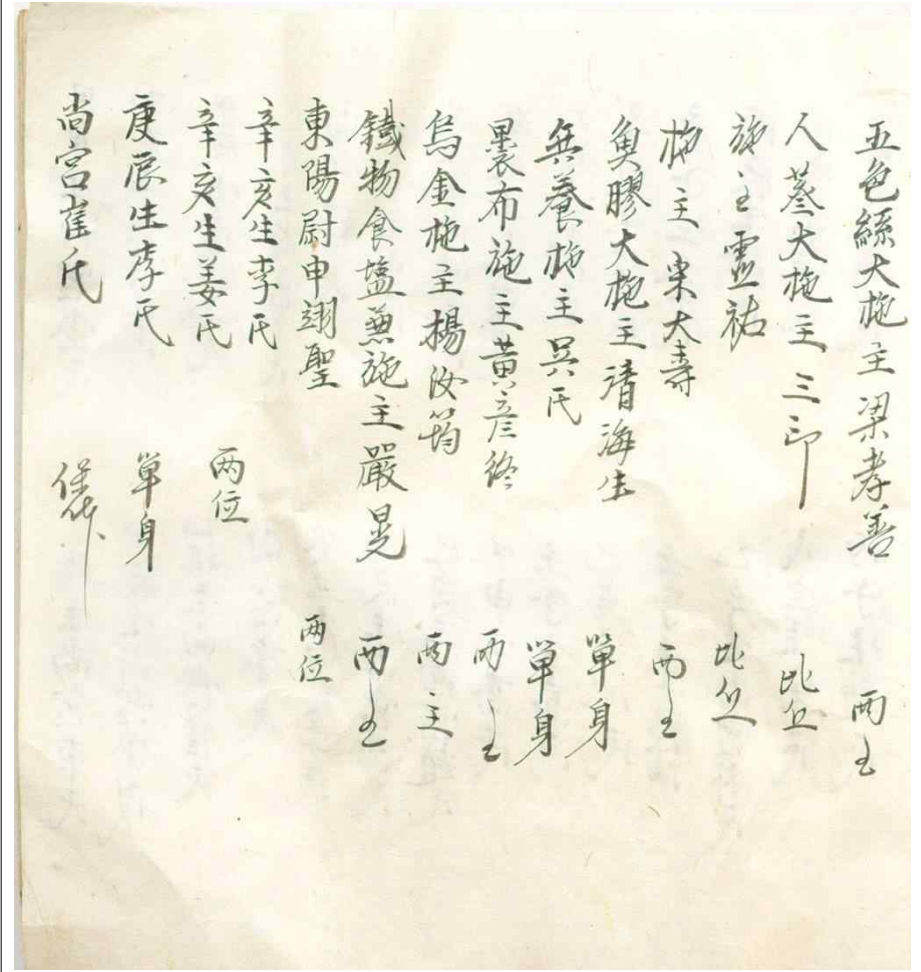 五色絲大施主梁孝善 两主
人蔘大施主三印 比丘
施主靈祐 比丘
施主宋大壽 两主
魚膠大施主淸海生 單身
供養施主吳氏 單身
裹布施主黃彦終 两主
烏金施主楊汝筠 两主
鐵物食塩兼施主嚴晃 两主
東陽尉申翊聖 两位
辛亥生李氏
辛亥生姜氏 两位
庚辰生李氏 單身
尚宮崔氏